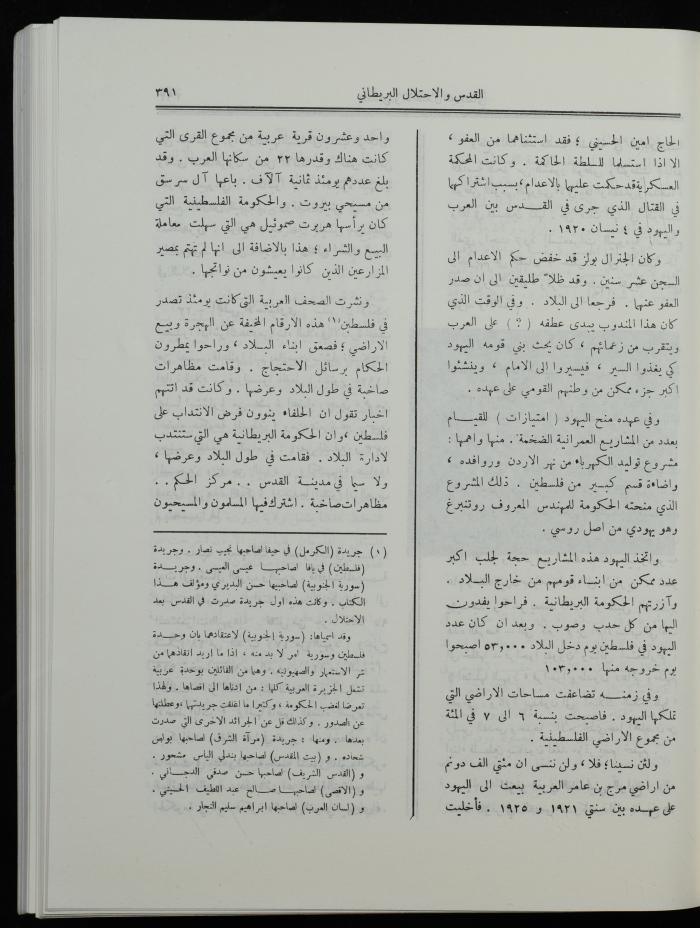 القدس والاحتلال البريطاني
٣٩١
الحاج امين الحسيني ؛ فقد استثناهما من العفو ،
الا اذا استسلما للسلطة الحاكمة . وكانت المحكمة
العسكرية قد حكمت عليهما بالاعدام ، بسبب اشتراكهما
في القتال الذي جرى في القدس بين العرب
واليهود في ٤ نيسان ١٩٢٠ .
وكان الجنرال بولز قد خفض حكم الاعدام الى
السجن عشر سنين . وقد ظلاّ طليقين الى ان صدر
العفو عنهما . فرجعا الى البلاد . وفي الوقت الذي
كان هذا المندوب يبدى عطفه ( ؟ ) على العرب
ويتقرب من زعمائهم ، كان يحث بني قومه اليهود
كي يغذوا السير ، فيسيروا الى الامام ، وينشئوا
اكبر جزء ممكن من وطنهم القومي على عهده .
وفي عهده منح اليهود ( امتيازات ) للقيام
بعدد من المشاريع العمرانية الضخمة . منها واهمها :
مشروع توليد الكهرباء من نهر الاردن وروافده ،
واضاءة قسم كبير من فلسطين . ذلك المشروع
الذي منحته الحكومة للمهندس المعروف روتنبرغ
وهو يهودي من اصل روسي .
واتخذ اليهود هذه المشاريع حجة لجلب اكبر
عدد ممكن من ابناء قومهم من خارج البلاد .
وآزرتهم الحكومة البريطانية . فراحوا يفدون
اليها من كل حدب وصوب . وبعد ان كان عدد
اليهود في فلسطين يوم دخل البلاد ٥٣,٠٠٠ اصبحوا
يوم خروجه منها ١٠٣,٠٠٠
وفي زمنه تضاعفت مساحات الاراضي التي
تملكها اليهود . فاصبحت بنسبة ٦ الى ٧ في المئة
من مجموع الاراضي الفلسطينية .
ولئن نسينا ؛ فلا ، ولن ننسى ان مئتي الف دونم
من اراضي مرج بن عامر العربية بيعت الى اليهود
على عهده بين سنتي ١٩٢١ و ١٩٢٥ . فأخليت
واحد وعشرون قرية عربية من مجموع القرى التي
كانت هناك وقدرها ٢٢ من سكانها العرب . وقد
بلغ عددهم يومئذ ثمانية آلاف . باعها آل سرسق
من مسيحي بيروت . والحكومة الفلسطينية التي
كان يرأسها هربرت صموئيل هي التي سهلت معاملة
البيع والشراء ؛ هذا بالاضافة الى انها لم تهتم بمصير
المزارعين الذين كانوا يعيشون من نواتجها .
ونشرت الصحف العربية التي كانت يومئذ تصدر
في فلسطين (١) هذه الارقام المخيفة عن الهجرة وبيع
الاراضي ؛ فصعق ابناء البلاد ، وراحوا يمطرون
الحكام برسائل الاحتجاج . وقامت مظاهرات
صاخبة في طول البلاد وعرضها . وكانت قد اتتهم
اخبار تقول ان الحلفاء ينوون فرض الانتداب على
فلسطين ، وان الحكومة البريطانية هي التي ستنتدب
لادارة البلاد . فقامت في طول البلاد وعرضها ،
ولا سيما في مدينة القدس . . مركز الحكم . .
مظاهرات صاخبة . اشترك فيها المسلمون والمسيحيون
(١) جريدة (الكرمل) في حيفا لصاحبها نجيب نصار . وجريدة
(فلسطين) في يافا لصاحبها عيسى العيسى . وجريدة
(سورية الجنوبية) لصاحبيها حسن البديري ومؤلف هذا
الكتاب . وكانت هذه اول جريدة صدرت في القدس بعد
الاحتلال .
وقد اسمياها : (سورية الجنوبية) لاعتقادهما بان وحدة
فلسطين وسورية امر لا بد منه ، اذا ما اريد انقاذهما من
شر الاستعمار والصهيونية . وهما من القائلين بوحدة عربية
تشمل الجزيرة العربية كلها : من ادناها الى اقصاها . ولهذا
تعرضا لغضب الحكومة ، وكثيرا ما اغلقت جريدتهما ، وعطلتها
عن الصدور . وكذلك قل عن الجرائد الاخرى التي صدرت
بعدها . ومنها : جريدة (مرآة الشرق) لصاحبها بولص
شحاده . و (بيت المقدس) لصاحبها بندلي الياس مشحور .
و (القدس الشريف) لصاحبها حسن صدقي الدجاني .
و (الاقصى) لصاحبها صالح عبد اللطيف الحسيني .
و (لسان العرب) لصاحبها ابراهيم سليم النجار .